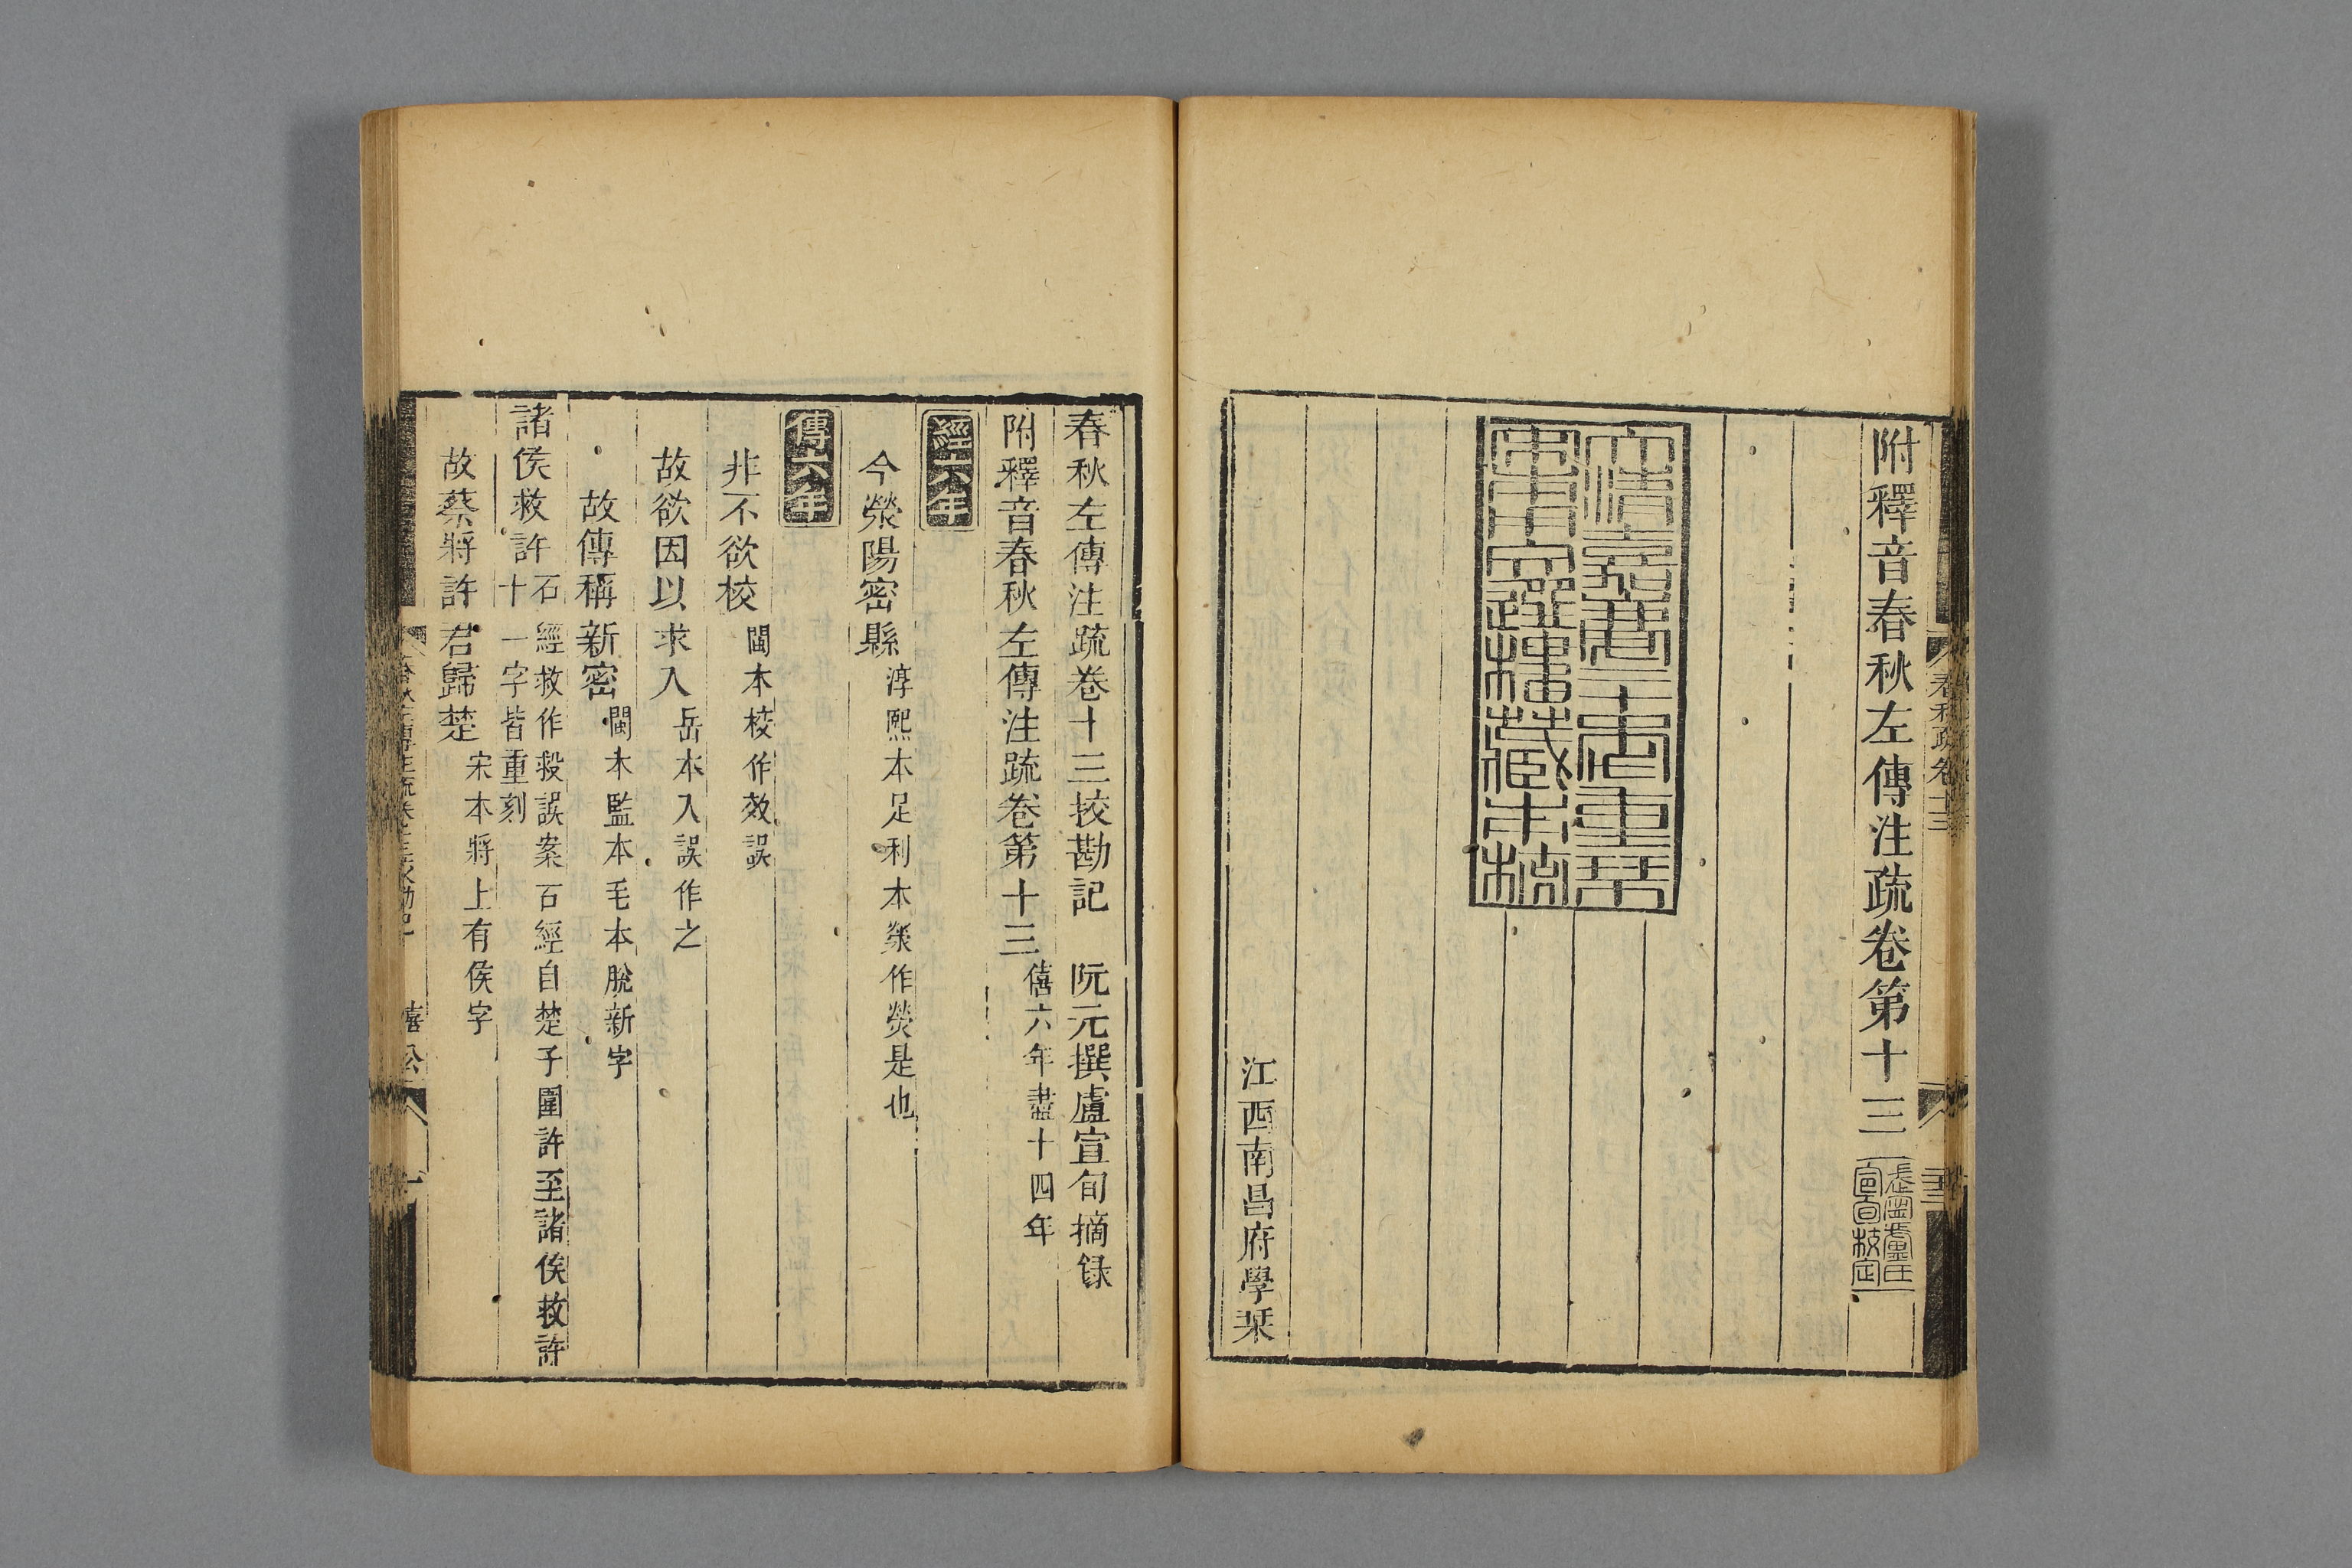 附釋音春秋左傳注疏卷第十三
長盧盧
宣旬校定
大清嘉慶二十年重栞
宋本十三經
江西南昌府學栞
春秋左傳注疏卷十三挍勘記 阮元撰盧宣旬摘録
附釋音春秋左傳注疏卷第十三 僖六年盡十四年
經六年
今滎陽密縣 淳熙本足利本滎作熒是也
傳六年
非不欲校 閩本校作效誤
故欲因以求入 岳本入誤作之
故傳稱新密 閩本監本毛本脫新字
諸侯救許 石經救作殺誤案石經自楚子圍許至諸侯救許
十一字皆重刻
故蔡將許君歸楚 宋本將上有侯字
春秋左傳注疏卷十三校勘記 僖公 一